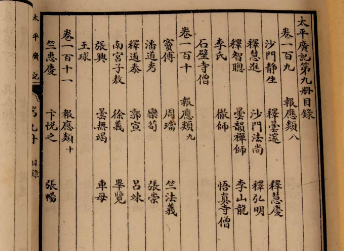 太平廣記第九册目録
卷一百九 報應類八
沙門静生 釋曇邃 釋慧慶
釋慧進 沙門法尚 釋弘明
釋智聰 曇韻禪師 李山龍
李氏 徹師 悟真寺僧
石壁寺僧
卷一百十 報應類九
竇傅 周璫 竺法義
潘道秀 欒荀 張崇
釋道泰 郭宣 呂竦
南宮子敖 徐義 畢覽
張興 曇無竭 車母
王球
卷一百十一 報應類十
竺惠慶 卞悦之 張暢
太平廣記 第九册 目録